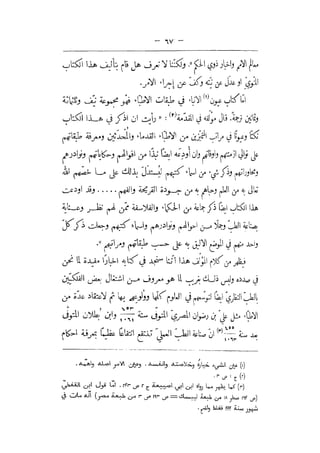 - ٦٧ -
معالم الامم واخبار ذوي الحكم». ولكنّنا لا نعرف هل قام بتأليف هذا الكتاب
المنويّ او عدل عن نيّته وكفّ عن اجراء الامر.
امّا كتاب عيون (١) الانباء في طبقات الاطبّاء فهو مجموعة نيّف وثلثمائة
وثمانين ترجمة. قال مؤلفه في المقدّمة (٢): «رأيت ان اذكر في هـذا الكتاب
نكتًا وعيونًا في مراتب المتميّزين من الاطبّاء القدماء والمحدثين ومعرفة طبقاتهم
على توالي ازمنتهم واوقاتهم وان أودعه ايضًا نبذًا من اقوالهم وحكاياتهم ونوادرهم
ومحاوراتهم وذكر شيء من اسماء كتبهم ليستدلّ بذلك على ما خصّهم الله
تعالى به من العلم وحباهم به من جـودة القريحة والفهم ..... وقد اودعت
هذا الكتاب ايضًا ذكر جماعة من الحكماء والفلاسفة ممّن لهم نظـر وعـناية
بصناعة الطبّ وجملًا من احوالهم ونوادرهم واسماء كتبهم وجعلت ذكر كلّ
واحد منهم في الموضع الاليق به على حسب طبقاتهم ومراتبهم».
فيظهر من كلام المؤلف هذا اننا سنجد في كتابه اخبارًا مفيدة لما نحن
في صدده وليس ذلـك بغريب لما هو معروف مـن اشتغال بعض الفلكيّين
بالطبّ النظريّ ايضًا لتوسّعهم في العلوم كلّها وولوعهم بها ثم لاعتقاد عدّة من
الاطبّاء مثل عليّ بن رضوان المصريّ المتوفى سنة ٤٥٣/١٠٦١ وابن بُطلان المتوفى
بعد سنة ٤٥٥/١٠٦٣ (٣) انّ صناعة الطبّ العمليّ تنتفع انتفاعًا عظيمًا بمعرفة احكام
(١) عين الشيء خياره وخلاصته وانفسه. وعين الامر اصله واهمّه.
(٢) ج ١ ص ٣.
(٣) كما يظهر مما رواه ابن ابي اصيبعة ج ١ ص ٢٤٣. امّا قول ابن القفطيّ
شهور سنة ٤٤٤ فغلط واضح.